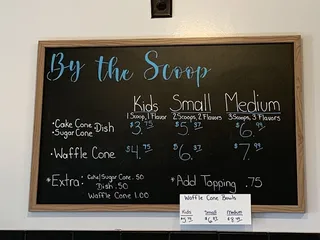 By the Scoop
Kids Small Medium
1 Scoop, 1 Flavor 2 Scoops, 2 Flavors 3 Scoops, 3 Flavors
• Cake Cone
• Sugar Cone Dish $3. $5. $6.
• Waffle Cone $4. $6. $7.
*Extra: Cake/Sugar Cone .50 *Add Topping .75
Dish .50
Waffle Cone 1.00
Waffle Cone Bowls
Kids Small Medium